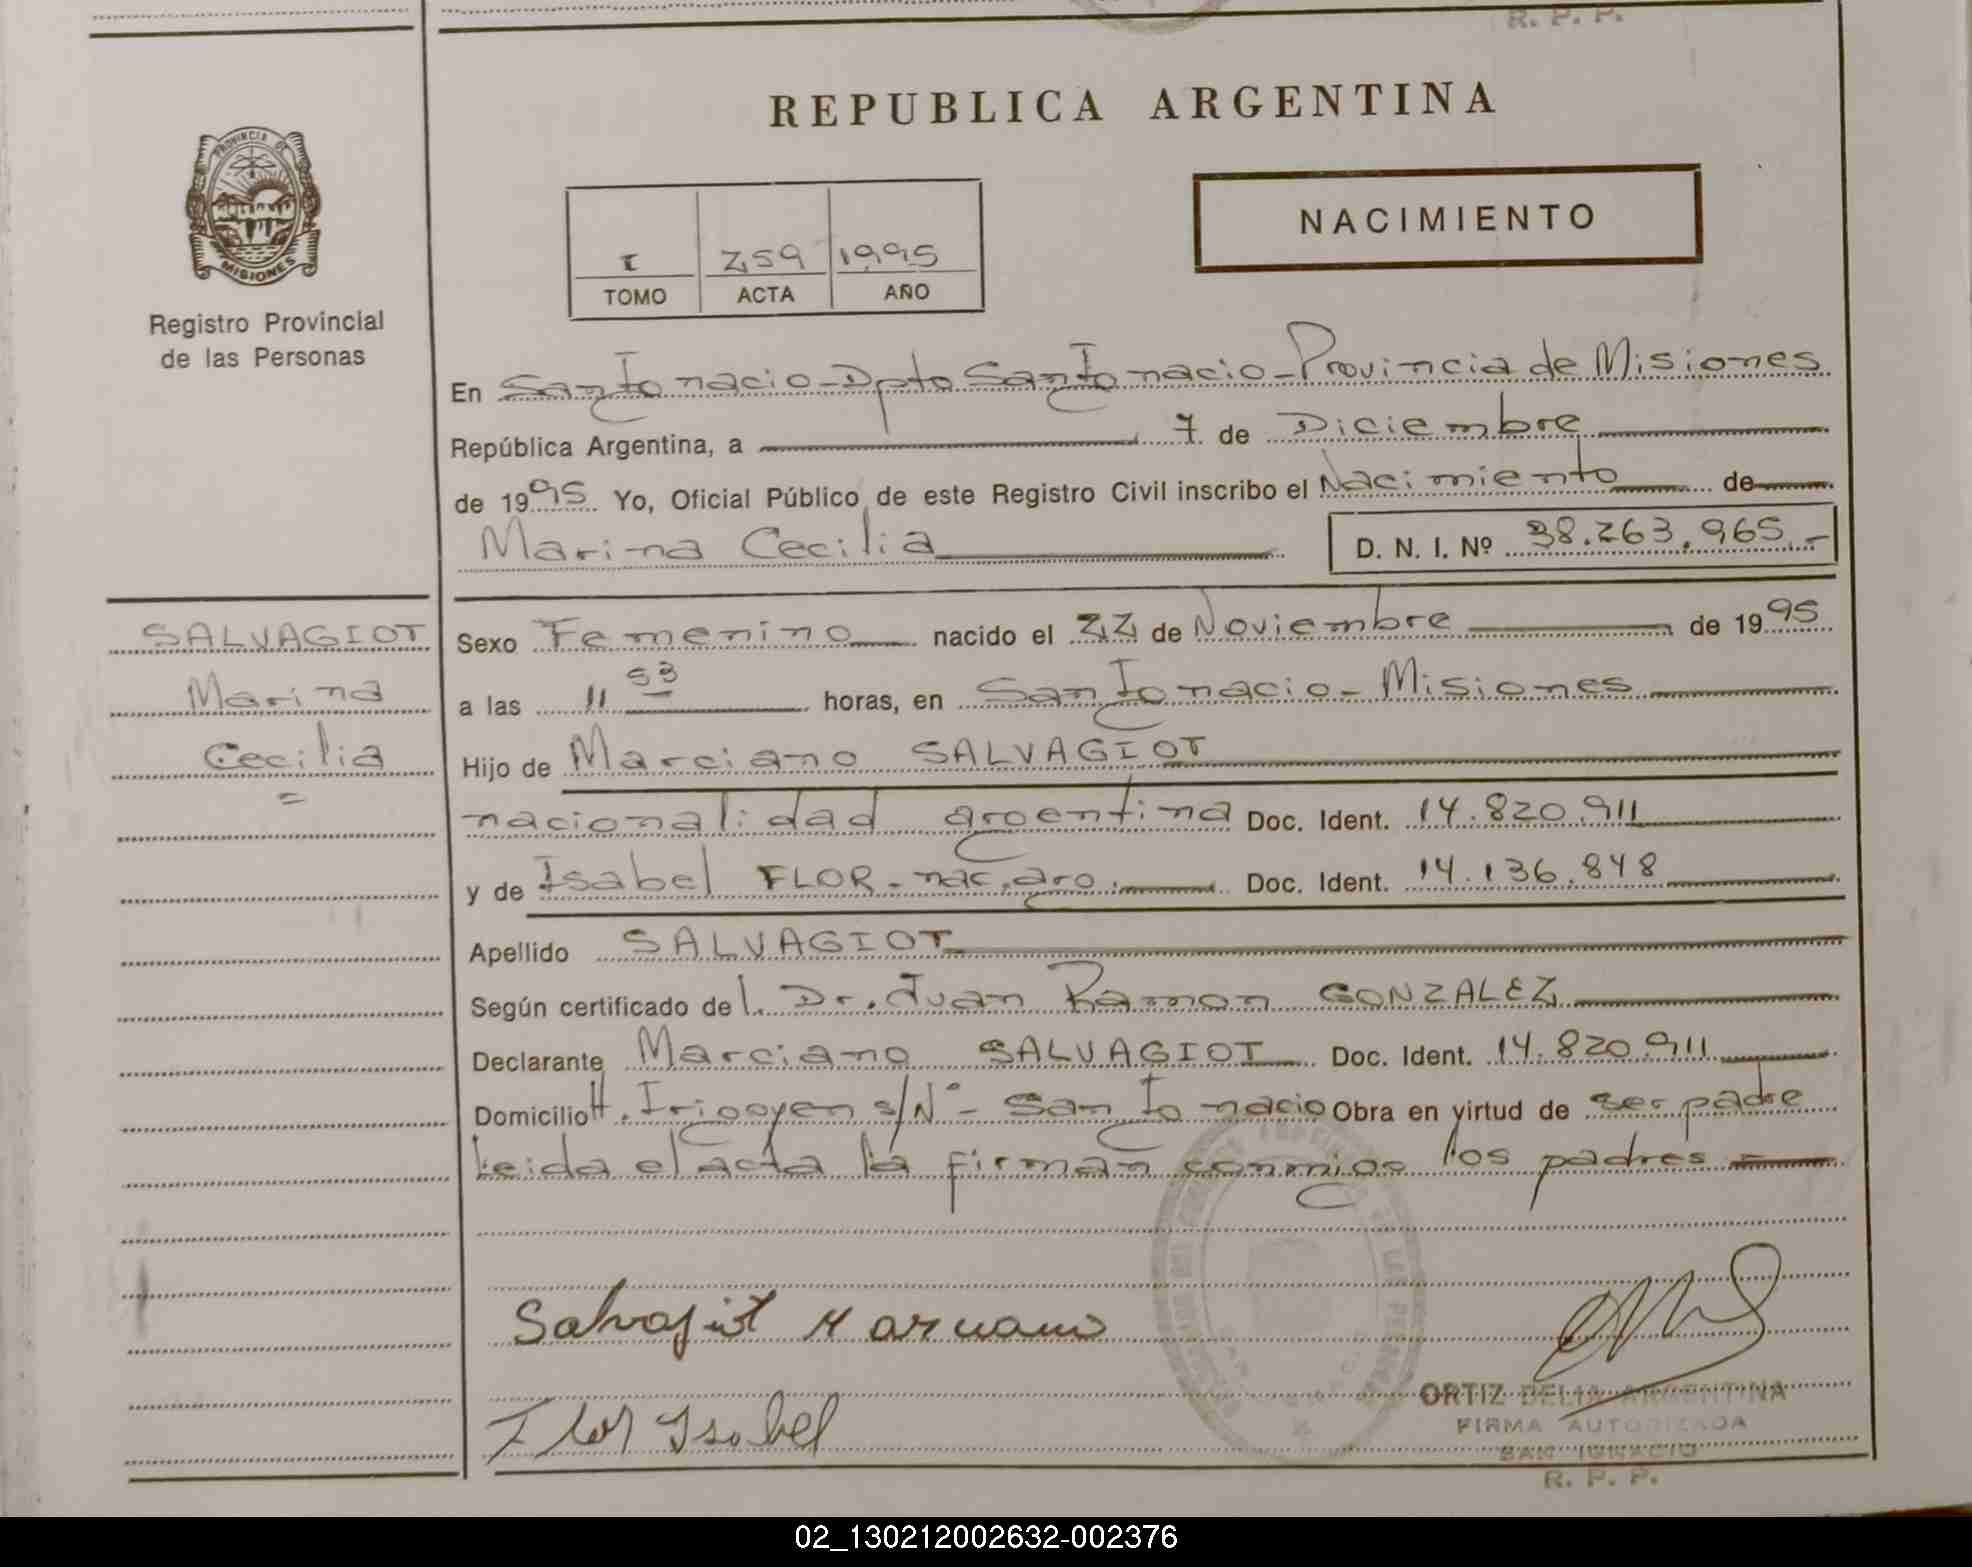 R. P. P.
REPUBLICA ARGENTINA
PROVINCIA DE
MISIONES
Registro Provincial
de las Personas
NACIMIENTO
I 259 1995
TOMO ACTA AÑO
En San Ignacio - Dpto San Ignacio - Provincia de Misiones
República Argentina, a 7 de Diciembre
de 1995 Yo, Oficial Público de este Registro Civil inscribo el Nacimiento de
Marina Cecilia D. N. I. Nº 38.263.965.-
SALVAGIOT
Marina
Cecilia
Sexo Femenino nacido el 22 de Noviembre de 1995
a las 11 53 horas, en San Ignacio - Misiones
Hijo de Marciano SALVAGIOT
nacionalidad argentina Doc. Ident. 14.820.911
y de Isabel FLOR - nac. arg. Doc. Ident. 14.136.848
Apellido SALVAGIOT
Según certificado del Dr. Juan Ramon GONZALEZ
Declarante Marciano SALVAGIOT Doc. Ident. 14.820.911
Domicilio H. Irigoyen s/Nº - San Ignacio Obra en virtud de ser padre
Leida el acta la firman conmigo los padres
Salvagiot Marciano
Flor Isabel
ORTIZ DELIA ARGENTINA
FIRMA AUTORIZADA
SAN IGNACIO
R. P. P.
02_130212002632-002376